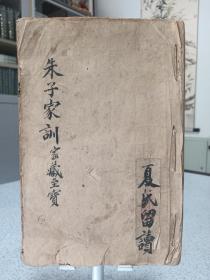 朱子家訓家藏至寶
夏氏留讀